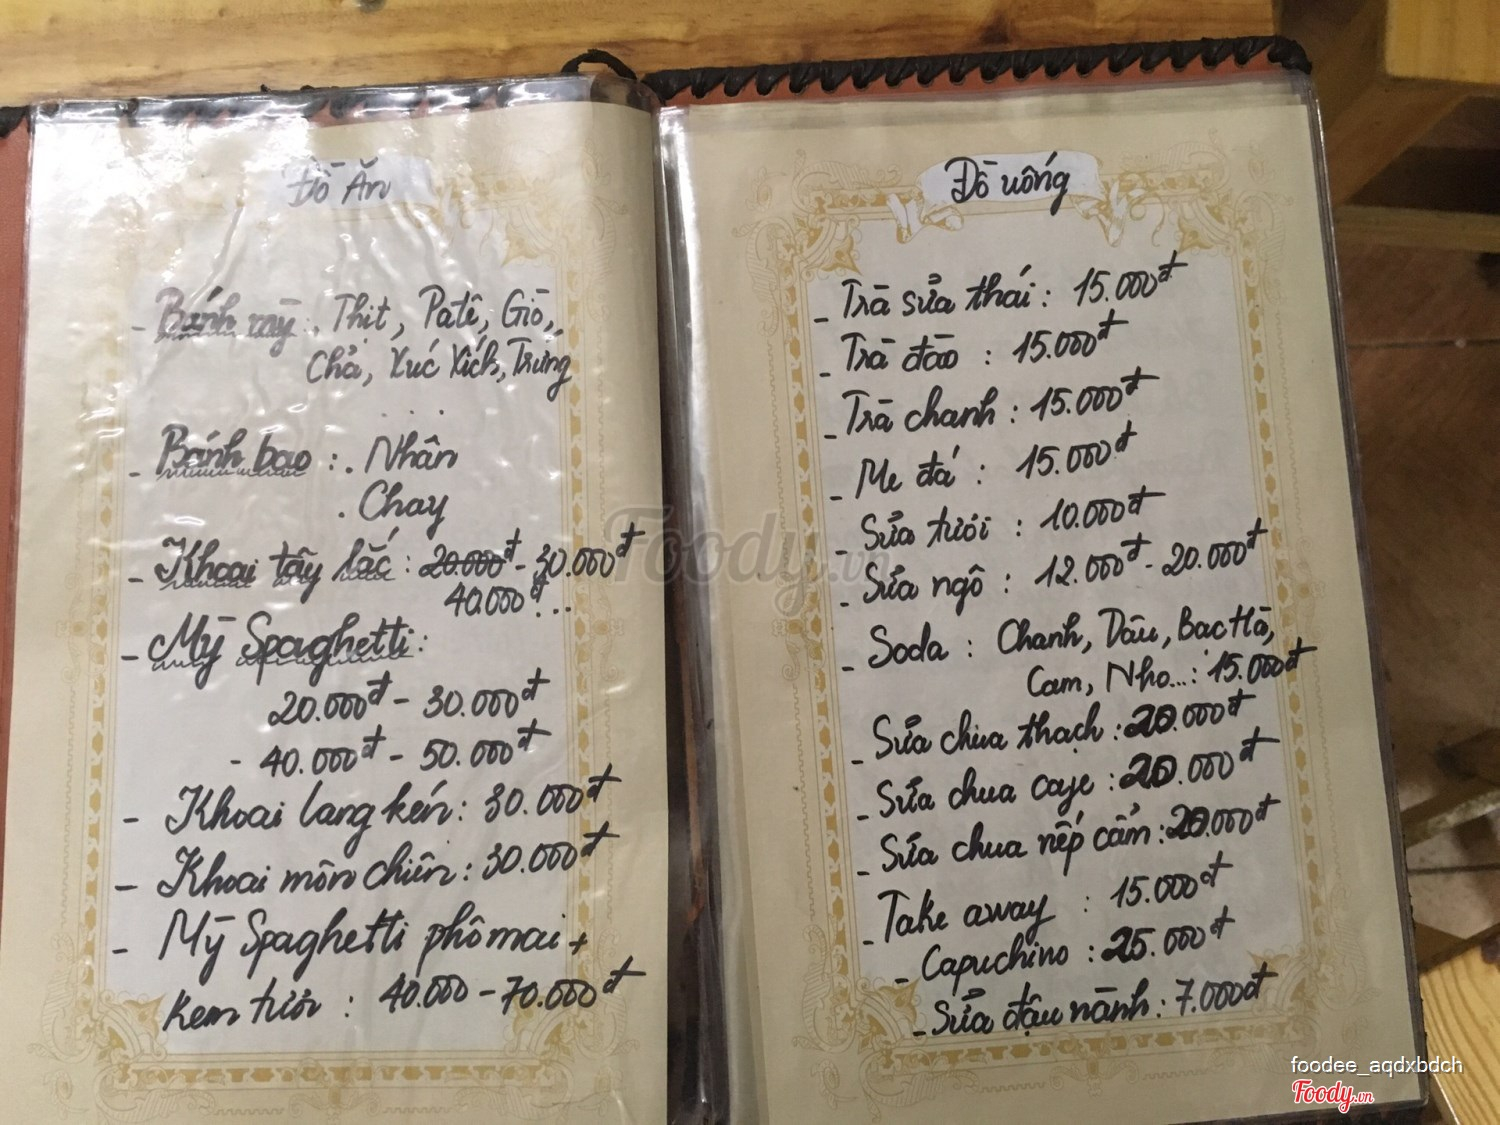 Đồ Ăn
- Bánh mỳ : Thịt, Patê, Giò,
Chả, Xúc Xích, Trứng
. . .
- Bánh bao : . Nhân
. Chay
- Khoai tây lắc : 20.000đ - 30.000đ
40.000đ...
- Mỳ Spaghetti :
20.000đ - 30.000đ
- 40.000đ - 50.000đ
- Khoai lang kén : 30.000đ
- Khoai môn chiên : 30.000đ
- Mỳ Spaghetti phô mai +
kem tươi : 40.000 - 70.000đ
Đồ uống
- Trà sửa thái : 15.000đ
- Trà đào : 15.000đ
- Trà chanh : 15.000đ
- Me đá : 15.000đ
- Sửa tươi : 10.000đ
- Sửa ngô : 12.000đ - 20.000đ
- Soda : Chanh, Dâu, Bạc Hà,
Cam, Nho...: 15.000đ
- Sửa chua thạch : 20.000đ
- Sửa chua cafe : 20.000đ
- Sửa chua nếp cẩm : 20.000đ
- Take away : 15.000đ
- Capuchino : 25.000đ
- Sửa đậu nành : 7.000đ
Foody.vn
foodee_aqdxbdch
Foody.vn